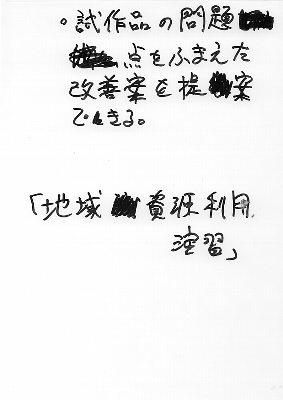 。試作品の問題
点をふまえた
改善案を提案
できる。
「地域資源利用
演習」